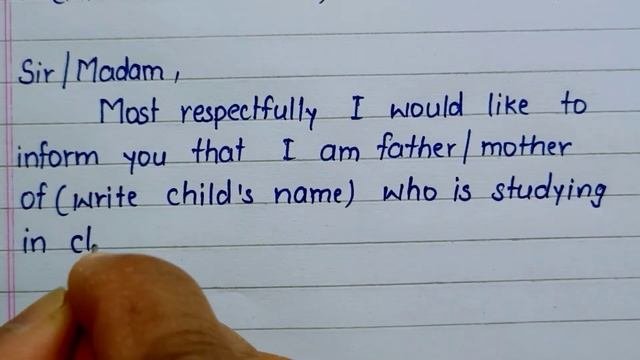 Sir/Madam,
Most respectfully I would like to
inform you that I am father/mother
of (write child's name) who is studying
in cl